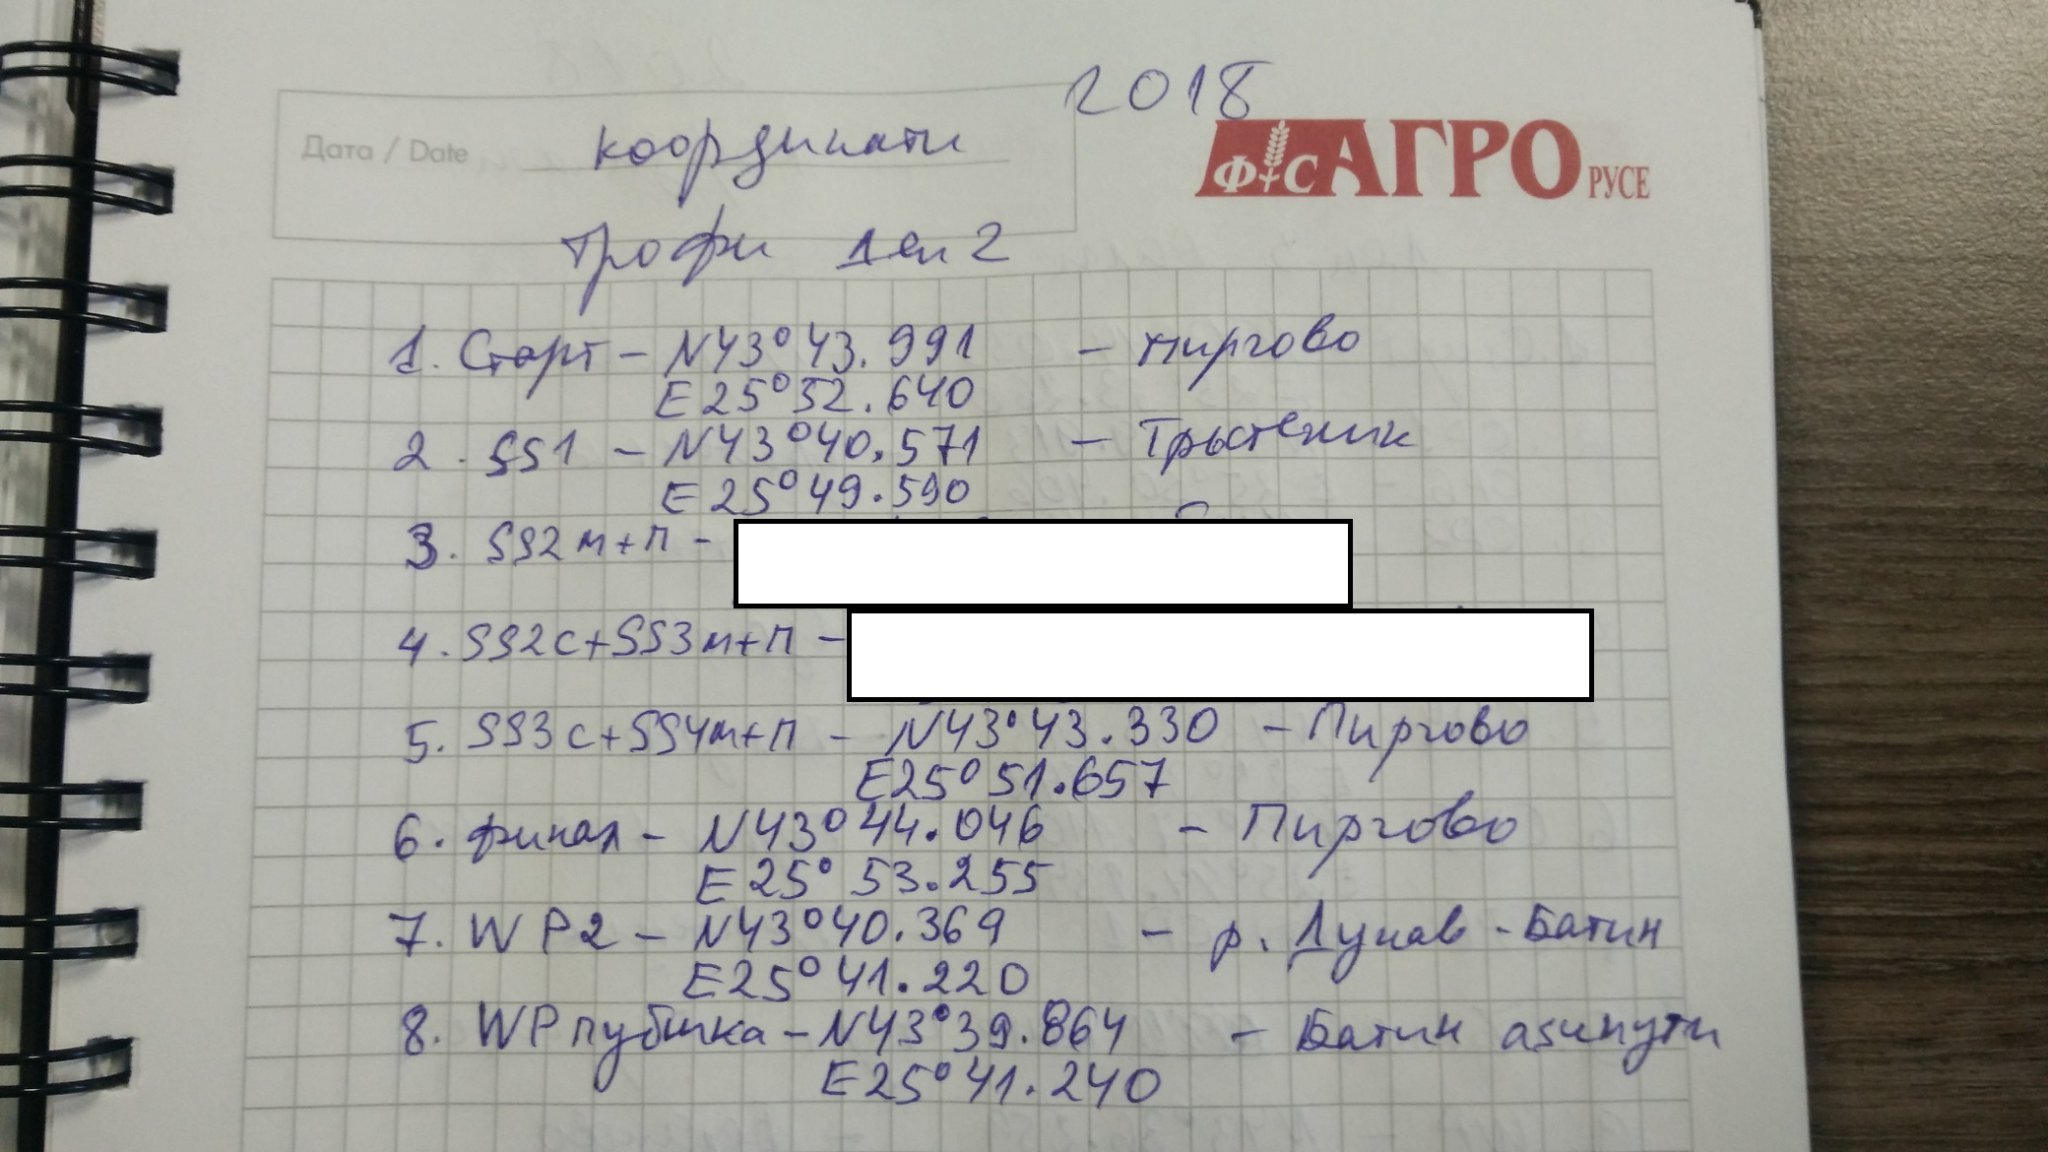 2018
Дата / Date координати
ФС АГРО РУСЕ
Трофи ден 2
1. Старт - N43°43.991 - Пиргово
E25°52.640
2. SS1 - N43°40.571 - Тръстеник
E25°49.590
3. SS2 м+п -
4. SS2с+SS3м+п -
5. SS3с+SS4м+п - N43°43.330 - Пиргово
E25°51.657
6. финал - N43°44.046 - Пиргово
E25°53.255
7. WP2 - N43°40.369 - р. Дунав - Батин
E25°41.220
8. WP публика - N43°39.864 - Батин азимути
E25°41.240